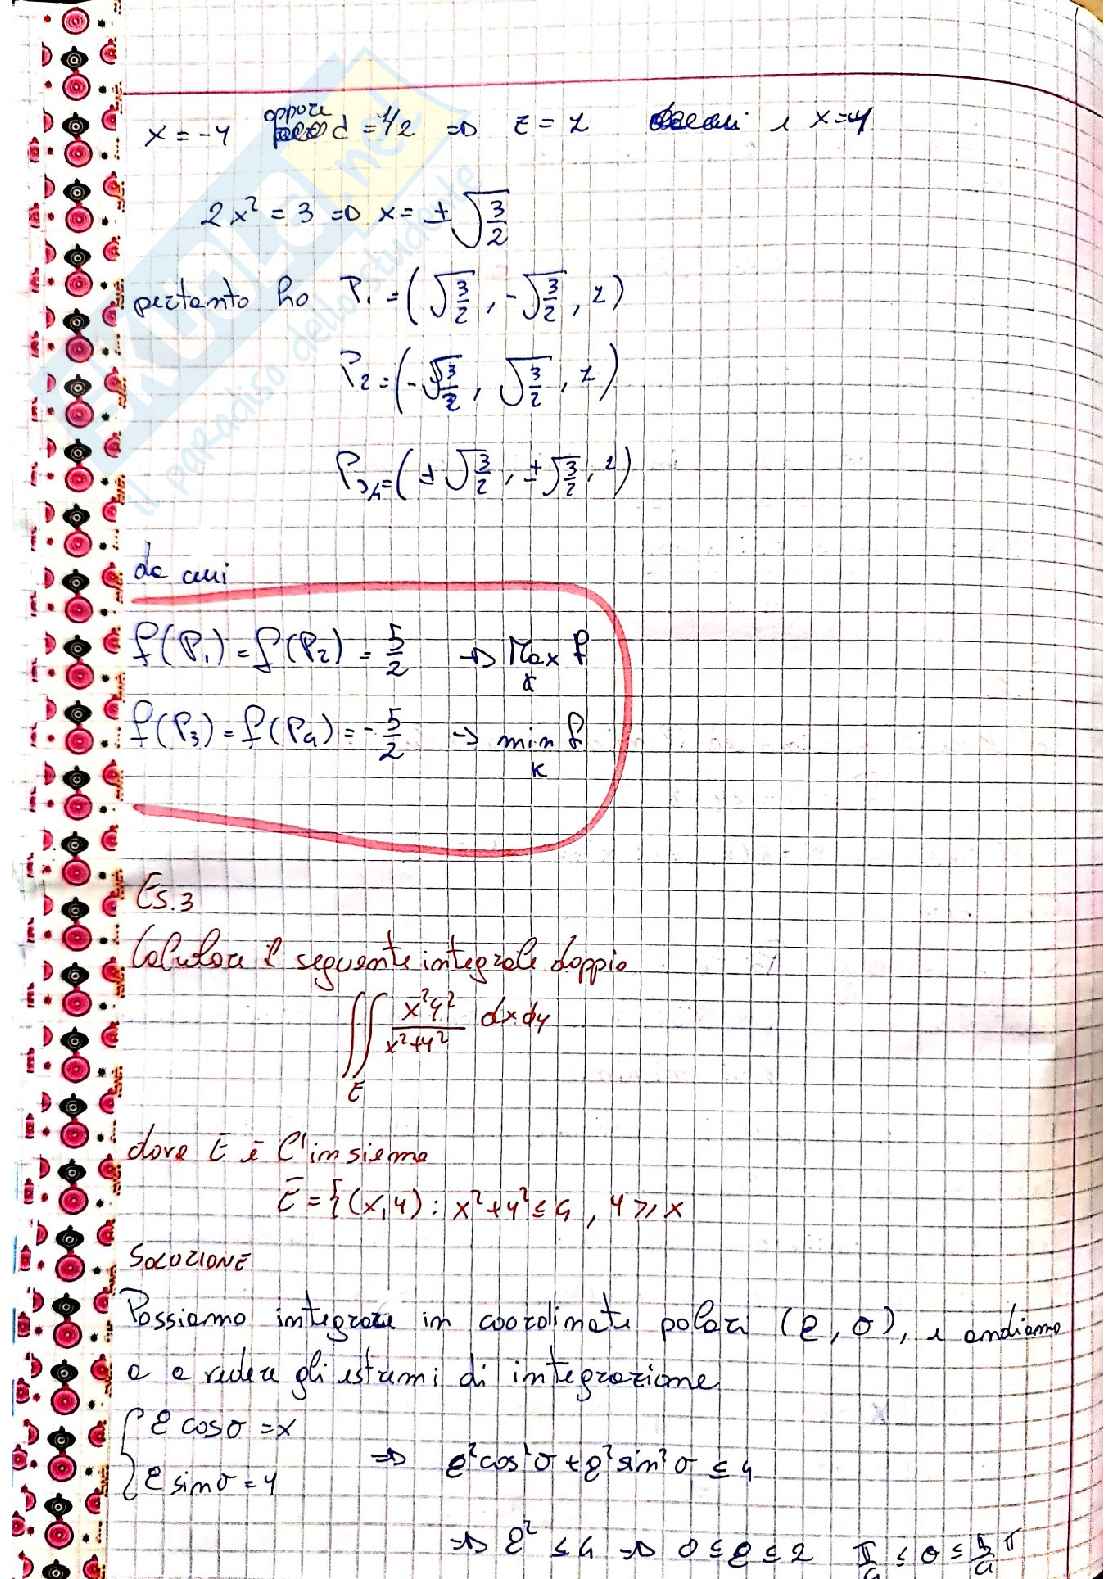 x = -y oppure d = 1/2 => z = 1 e x=y
2x² = 3 => x = ± √(3/2)
pertanto ho P₁ = (√(3/2), -√(3/2), 1)
P₂ = (-√(3/2), √(3/2), 1)
P₃,₄ = (± √(3/2), ± √(3/2), 1)
da cui
f(P₁) = f(P₂) = 5/2 → Max f
K
f(P₃) = f(P₄) = -5/2 → min f
K
Es.3
Calcolare il seguente integrale doppio
∬ x²y²/(x²+y²) dx dy
E
dove E è l'insieme
E = {(x,y) : x²+y² ≤ 4, y ≥ x
SOLUZIONE
Possiamo integrare in coordinate polari (ρ, σ), e andiamo
a a vedere gli estremi di integrazione.
{ ρ cosσ = x
ρ sinσ = y => ρ²cos²σ + ρ²sin²σ ≤ 4
=> ρ² ≤ 4 => 0 ≤ ρ ≤ 2 π/4 ≤ σ ≤ 5/4 π
SKUOLA.net
il paradiso dello studente